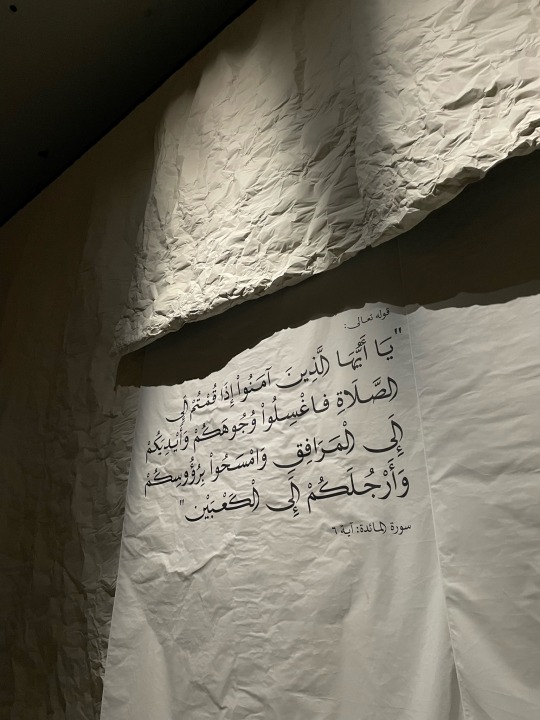 قوله تعالى:
"يَا أَيُّهَا الَّذِينَ آمَنُواْ إِذَا قُمْتُمْ إِلَى
الصَّلَاةِ فَاغْسِلُواْ وُجُوهَكُمْ وَأَيْدِيَكُمْ
إِلَى الْمَرَافِقِ وَامْسَحُواْ بِرُؤُوسِكُمْ
وَأَرْجُلَكُمْ إِلَى الْكَعْبَيْنِ"
سورة المائدة: آية ٦